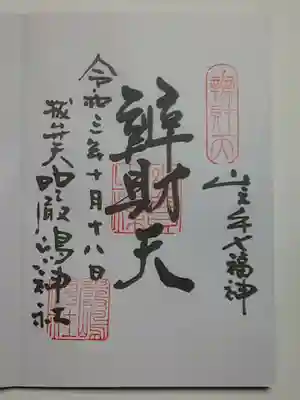 山之手七福神
辨財天
令和三年十月十八日
抜弁天 嚴嶋神社